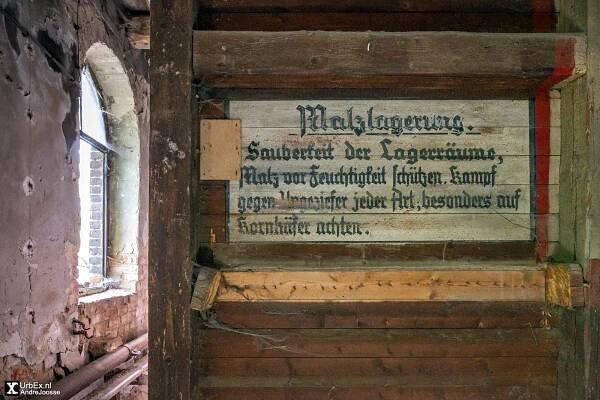 Malzlagerung.
Sauberkeit der Lagerräume,
Malz vor Feuchtigkeit schützen. Kampf
gegen Ungeziefer jeder Art, besonders auf
Kornkäfer achten.
UrbEx.nl
AndreJoosse